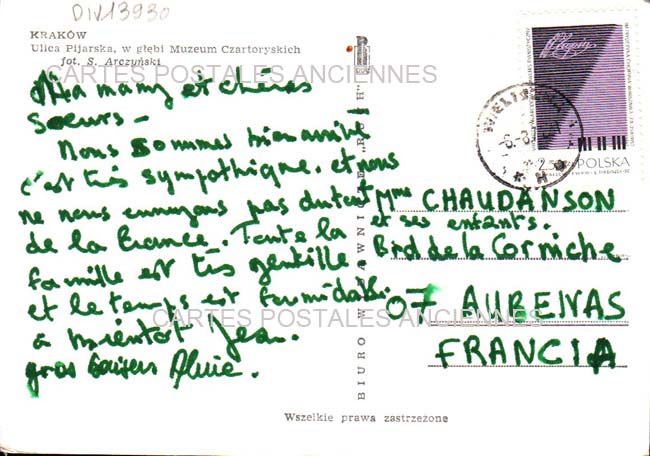 DIV13930
KRAKÓW
Ulica Pijarska, w głębi Muzeum Czartoryskich
fot. S. Arczyński
CARTES POSTALES ANCIENNES
Mamany et chères
Soeurs -
Nous sommes bien arrivés
c'est très sympathique. et nous
ne nous ennuyons pas du tout
de la France. Toute la
famille est très gentille
et le temps est formidable.
à bientôt Jean.
gros baisers
Mme CHAUDANSON
et ses enfants.
Bvd de la Corniche
07 AUBENAS
FRANCIA
CARTES POSTALES ANCIENNES
BIURO WYDAWNICZE „RUCH"
Chopin
2.50
POLSKA
Wszelkie prawa zastrzeżone